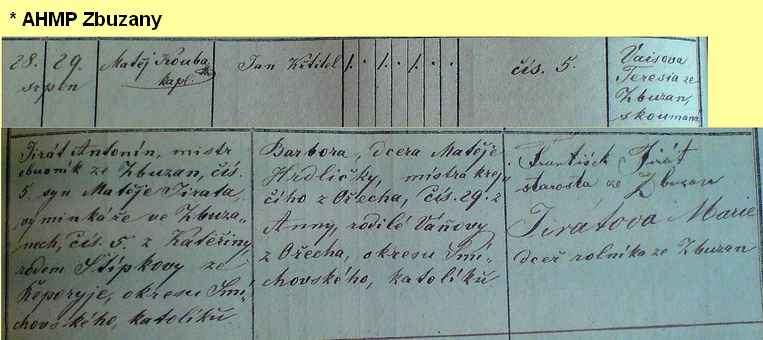 * AHMP Zbuzany
28. 29.
srpen
Matěj Kouba
kapl.
Jan Křtitel
1. . 1. . 1. .
čís. 5.
Vaisova
Teresia ze
Zbuzan,
zkoumaná
Jirát Antonín, mistr
obuvník ze Zbuzan, čís.
5. syn Matěje Jiráta
výminkáře ve Zbuza-
nech, čís. 5. z Kateřiny
rodem Štípkovy ze
Řeporyje, okresu Smí-
chovského, katolíků
Barbora, dcera Matěje
Hrdličky, mistra krej-
čího z Ořecha, čís. 29. z
Anny, rodilé Váňovy
z Ořecha, okresu Smí-
chovského, katolíků
František Jirát
starosta ze Zbuzan
Jirátova Marie
dceř rolníka ze Zbuzan